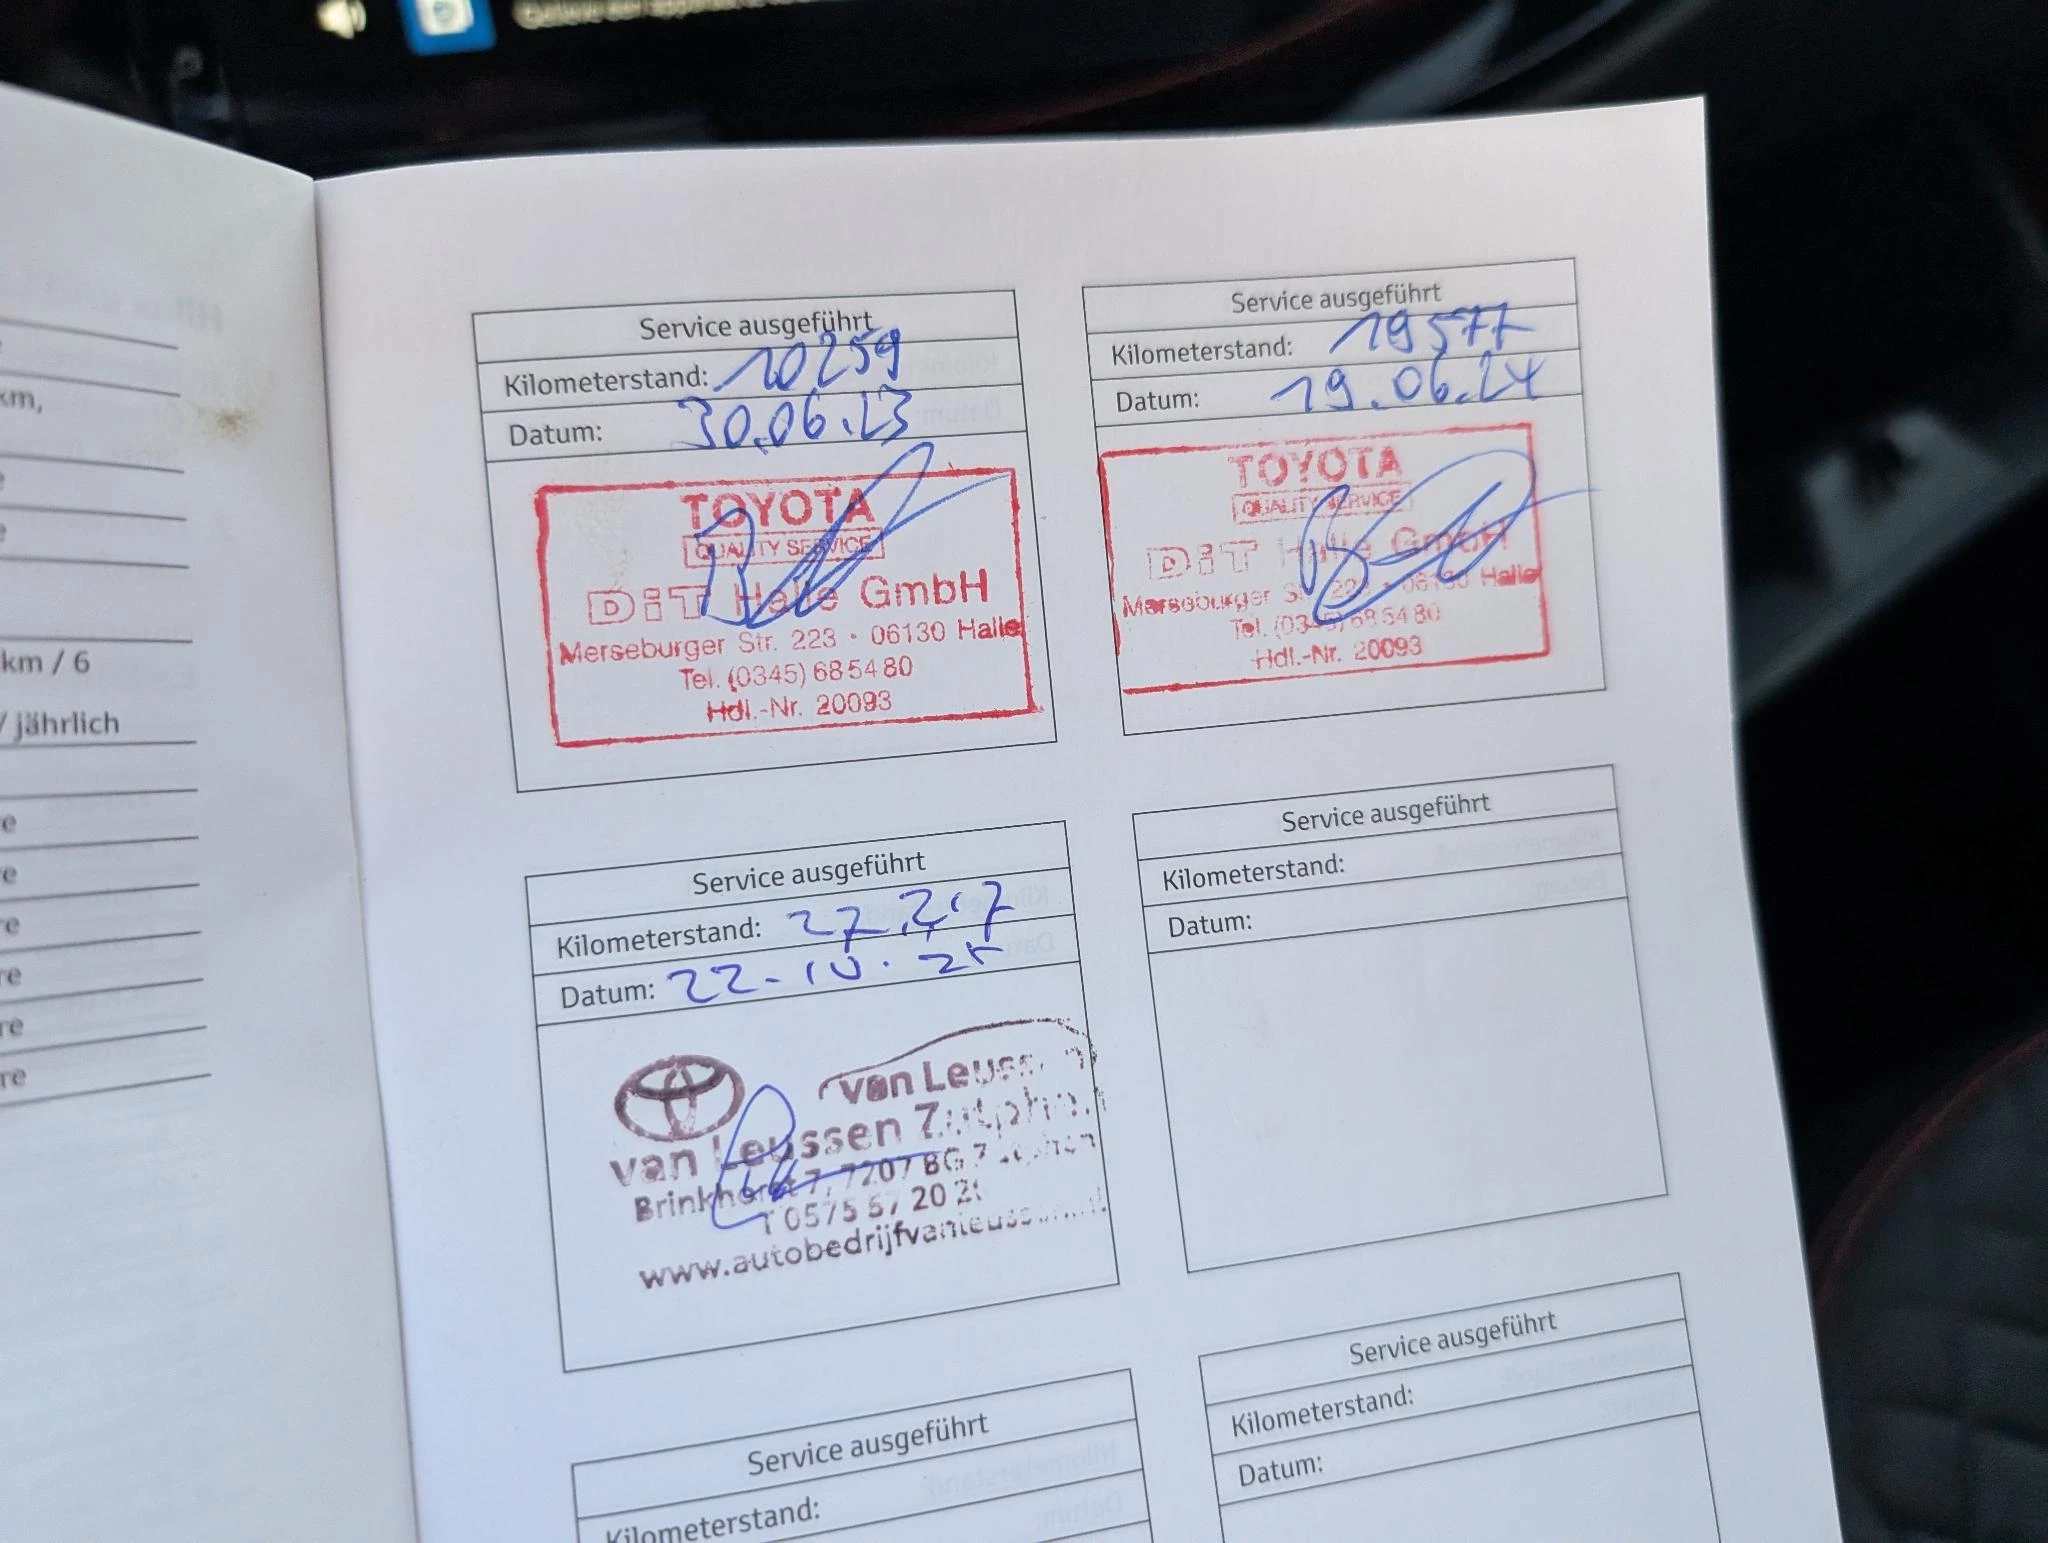 km,
km / 6
/ jährlich
re
re
re
re
re
re
Service ausgeführt
Kilometerstand: 10259
Datum: 30.06.23
TOYOTA
QUALITY SERVICE
DiT Halle GmbH
Merseburger Str. 223 · 06130 Halle
Tel. (0345) 68 54 80
Hdl.-Nr. 20093
Service ausgeführt
Kilometerstand: 19577
Datum: 19.06.24
TOYOTA
QUALITY SERVICE
DiT Halle GmbH
Merseburger Str. 223 · 06130 Halle
Tel. (0345) 68 54 80
Hdl.-Nr. 20093
Service ausgeführt
Kilometerstand:
Datum: 22-10.25
van Leussen
van Leussen Zutphen
Brinkhorst 7, 7207 BG Zutphen
T 0575 57 20
www.autobedrijfvanleussen.nl
Service ausgeführt
Kilometerstand:
Datum:
Service ausgeführt
Kilometerstand:
Service ausgeführt
Kilometerstand:
Datum: